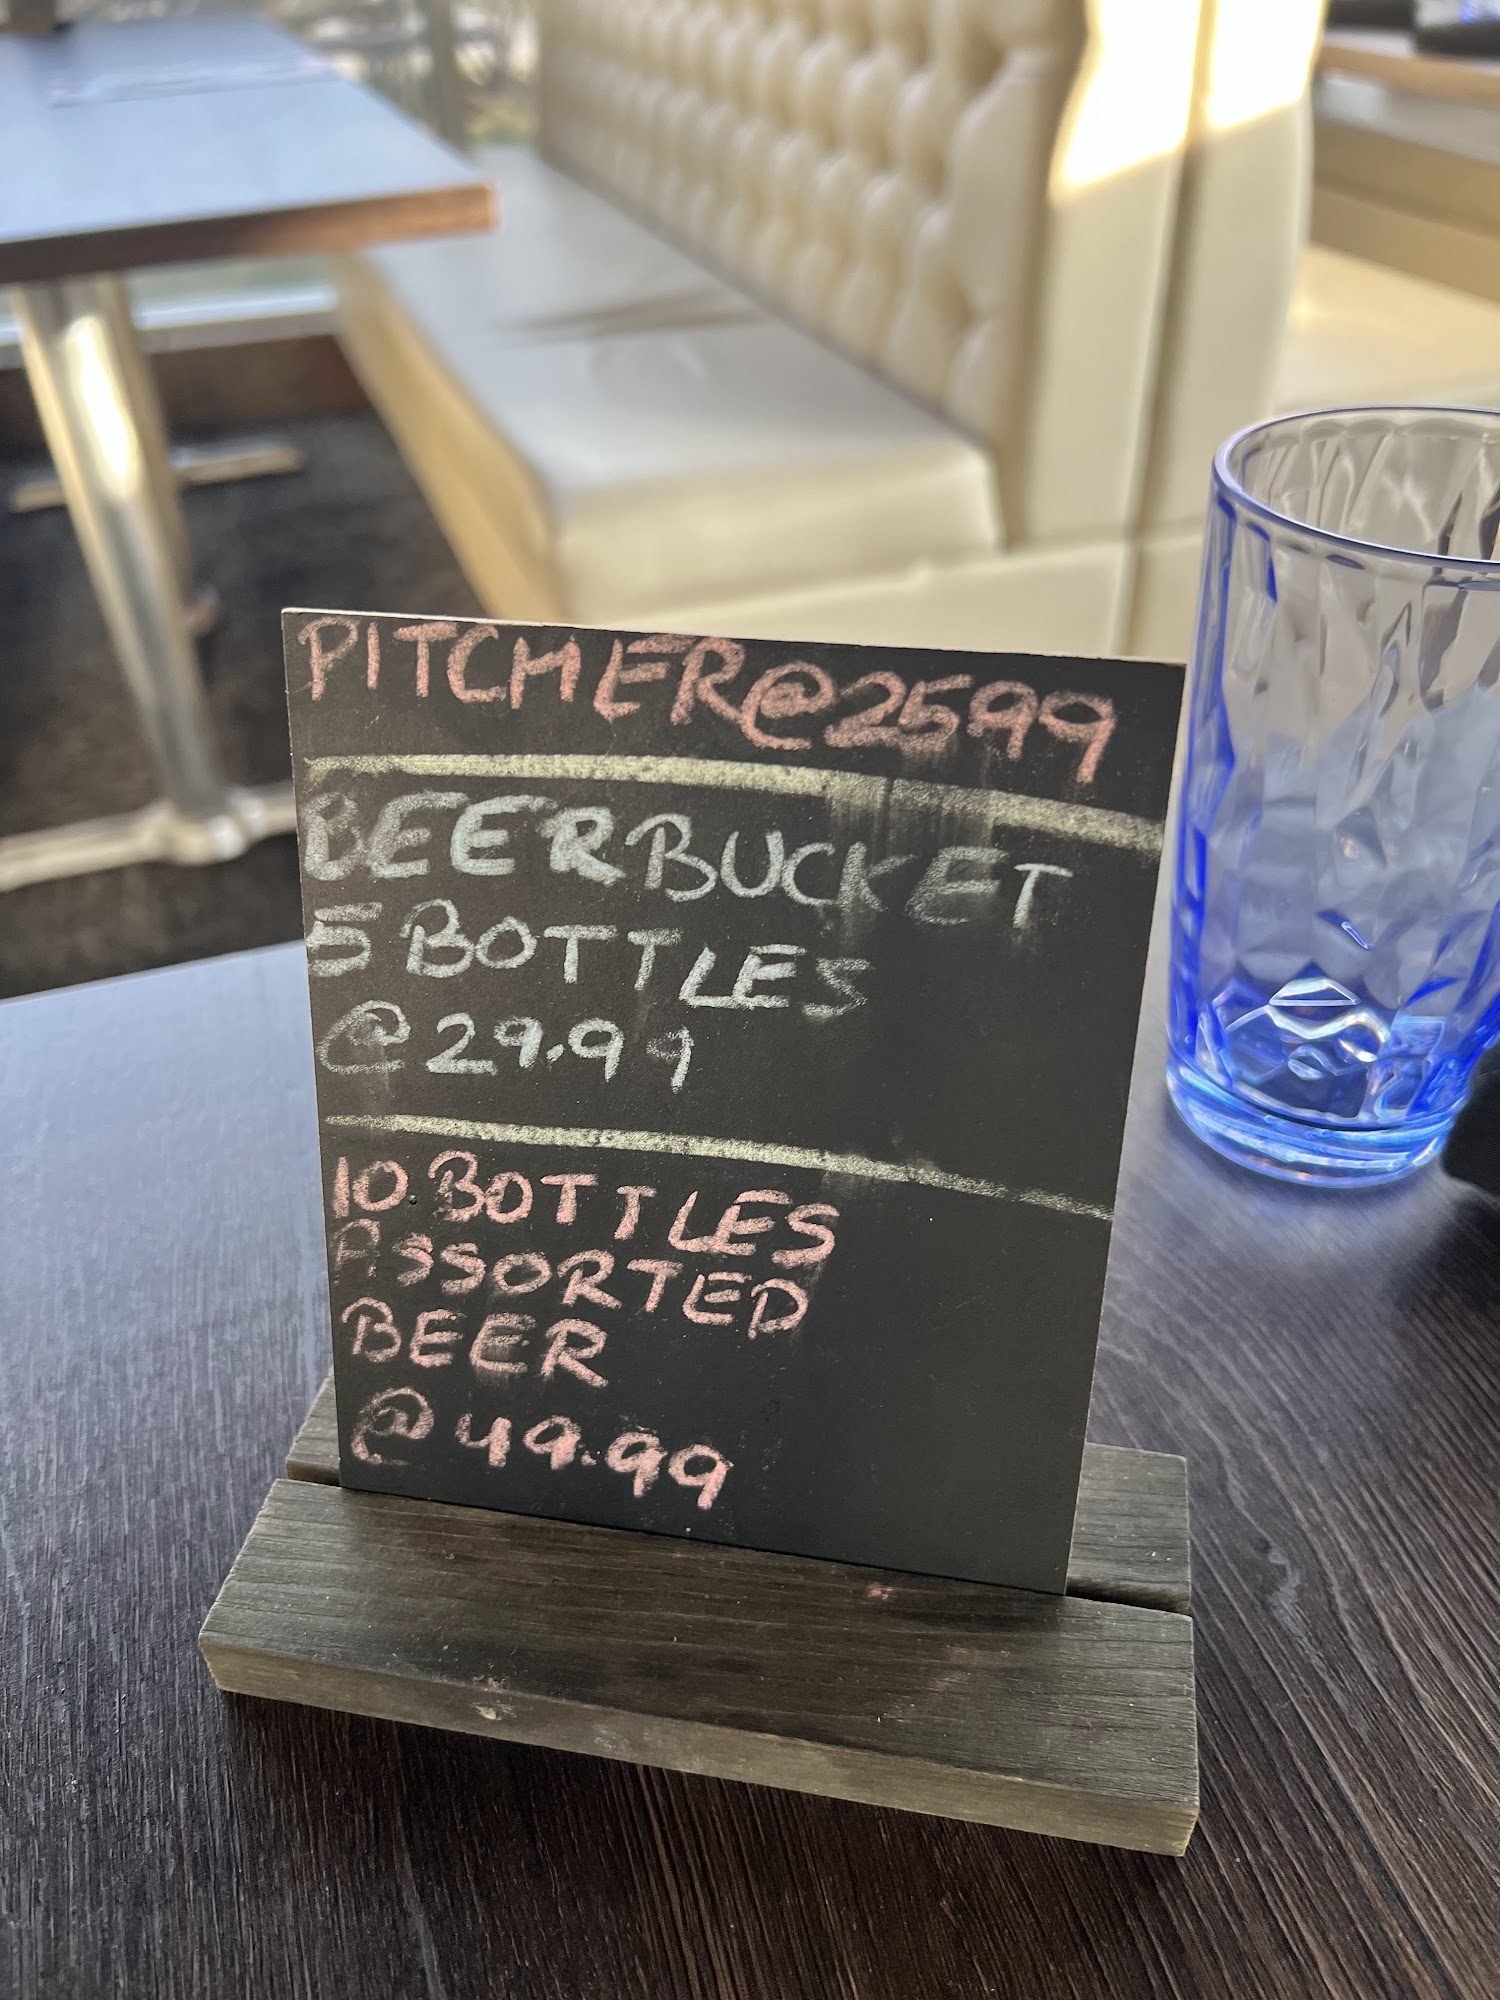 PITCHER@2599
BEER BUCKET
5 BOTTLES
@29.99
10 BOTTLES
ASSORTED
BEER
@49.99